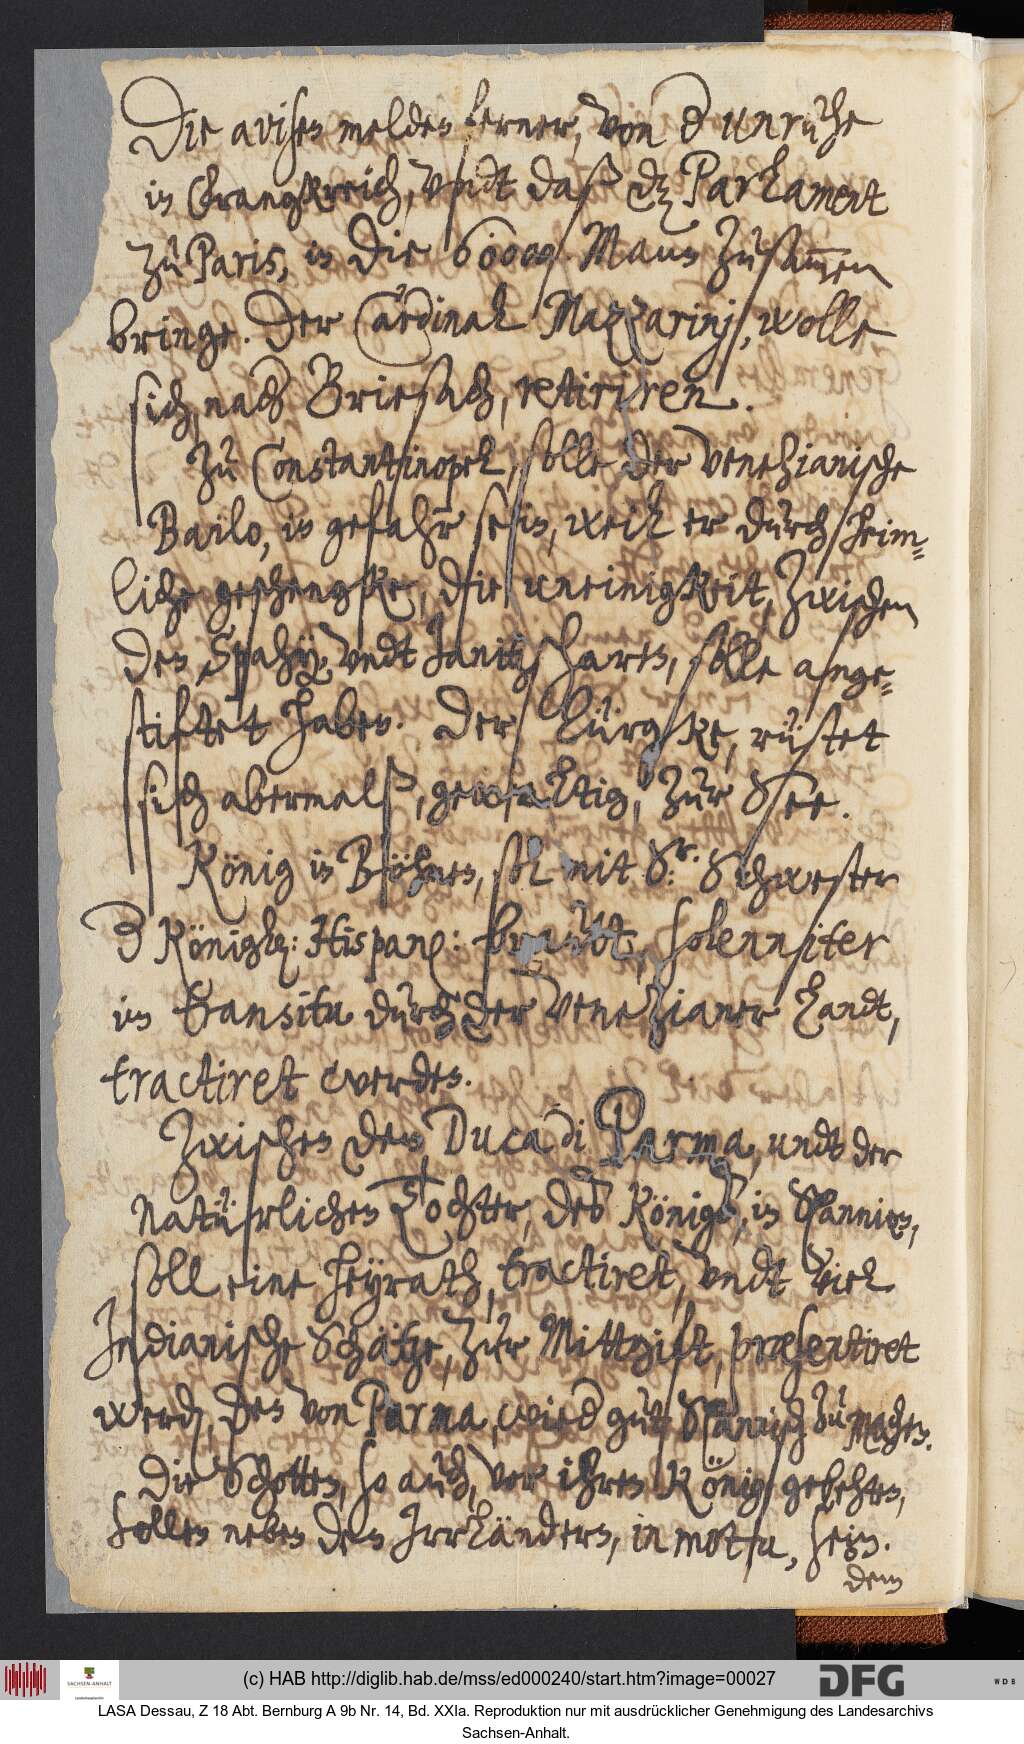 Die avisen melden ferner, von d unruhe
in Franckreich, undt daß dz Parlament
zu Paris, in die 60000 Mann zusam̅en
bringe. Der Cardinal Mazzarinj, wolle
sich, nach Briesach, retiriren.
Zu Constantinopel, solle der Venezianische
Bailo, in gefahr sein, weil er durch heim-
liche geschengke, die uneinigkeit, zwischen
den Spahÿ, undt Janitzscharen, solle ange-
stiftet haben. Der Türgke, rüstet
sich abermalß, gewaltig, zur See.
König in Böhmen, sol mit Sr: Schwester
d Königl: Hispan: braut, solenniter
in transitu durch der Venezianer landt,
tractiret werden.
Zwischen dem Duca di Parma, undt der
Natührlichen Tochter, des Königs, in Spannien,
soll eine heyrath, tractiret, undt viel
Indianische Schätze, zur Mittgift, præsentiret
werden, den von Parma, wied gut Spannisch zu machen.
Die Schotten, so auch, vor ihren König gebehten,
sollen neben den Irrländern, in motu, sein.
dem
(c) HAB http://diglib.hab.de/mss/ed000240/start.htm?image=00027
SACHSEN-ANHALT
DFG
WDB
LASA Dessau, Z 18 Abt. Bernburg A 9b Nr. 14, Bd. XXIa. Reproduktion nur mit ausdrücklicher Genehmigung des Landesarchivs
Sachsen-Anhalt.